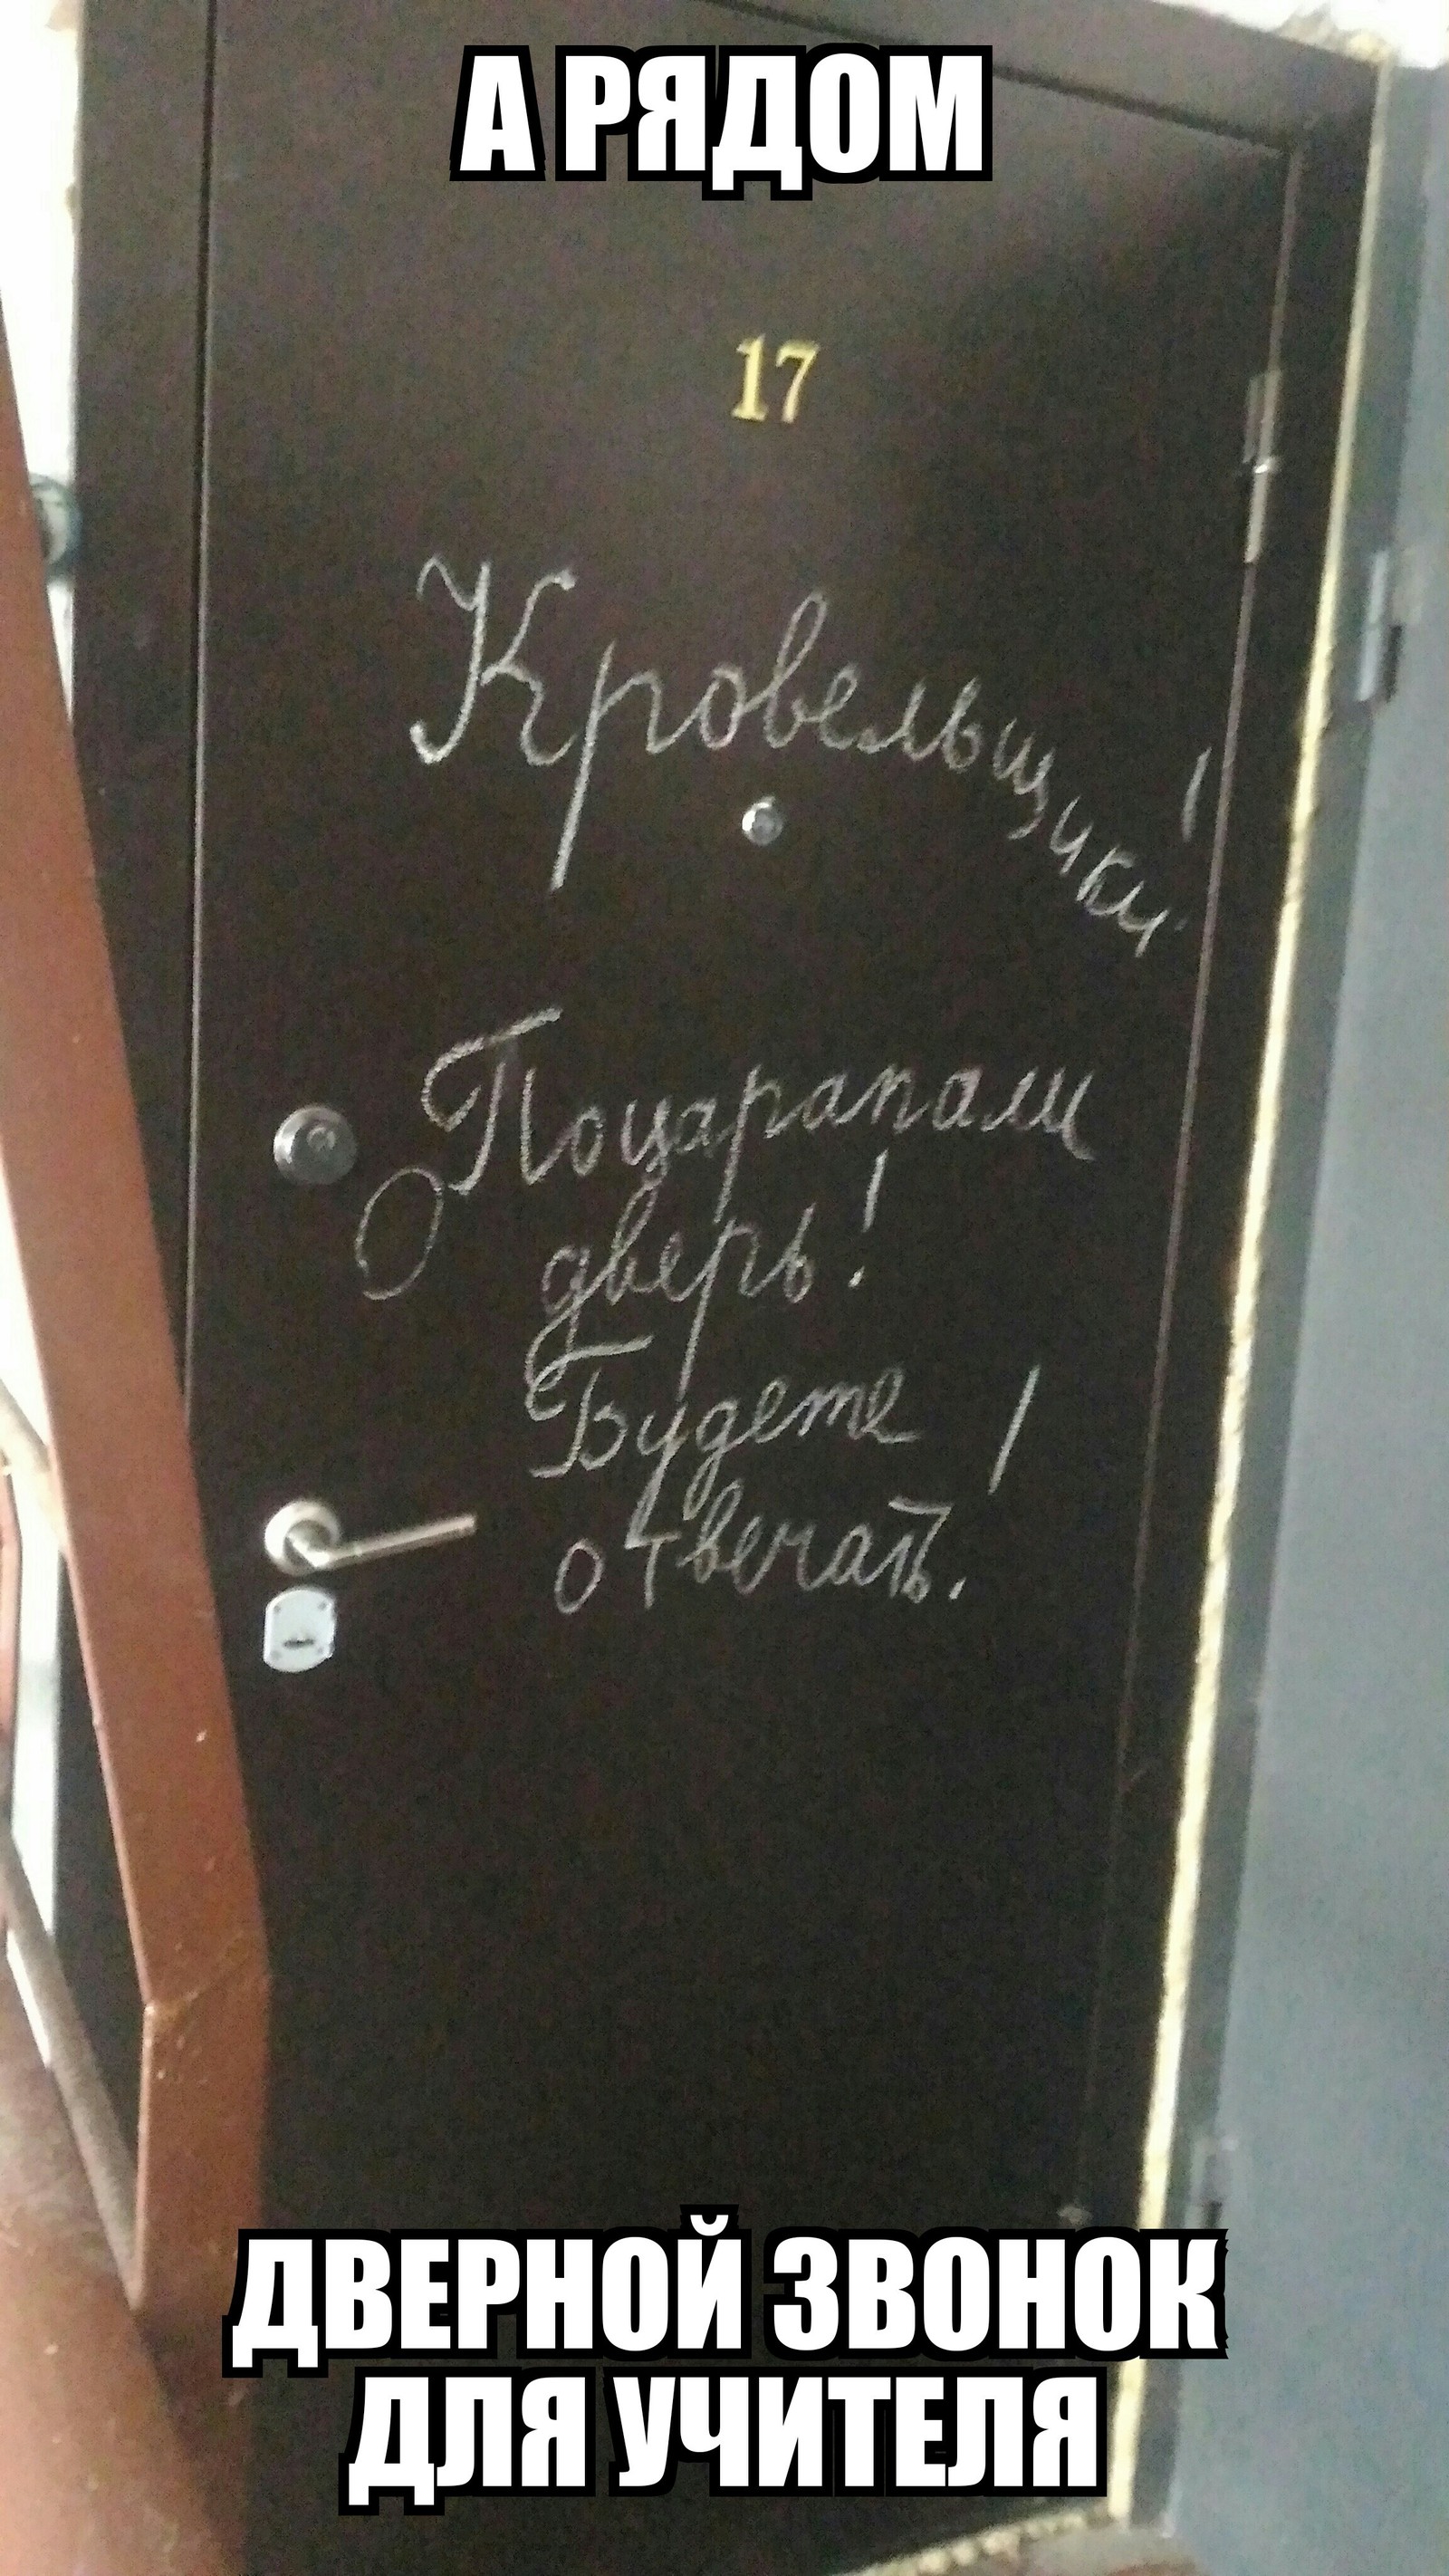 А РЯДОМ
17
Кровельщики!
Поцарапали
дверь!
Будете
отвечать!
ДВЕРНОЙ ЗВОНОК
ДЛЯ УЧИТЕЛЯ